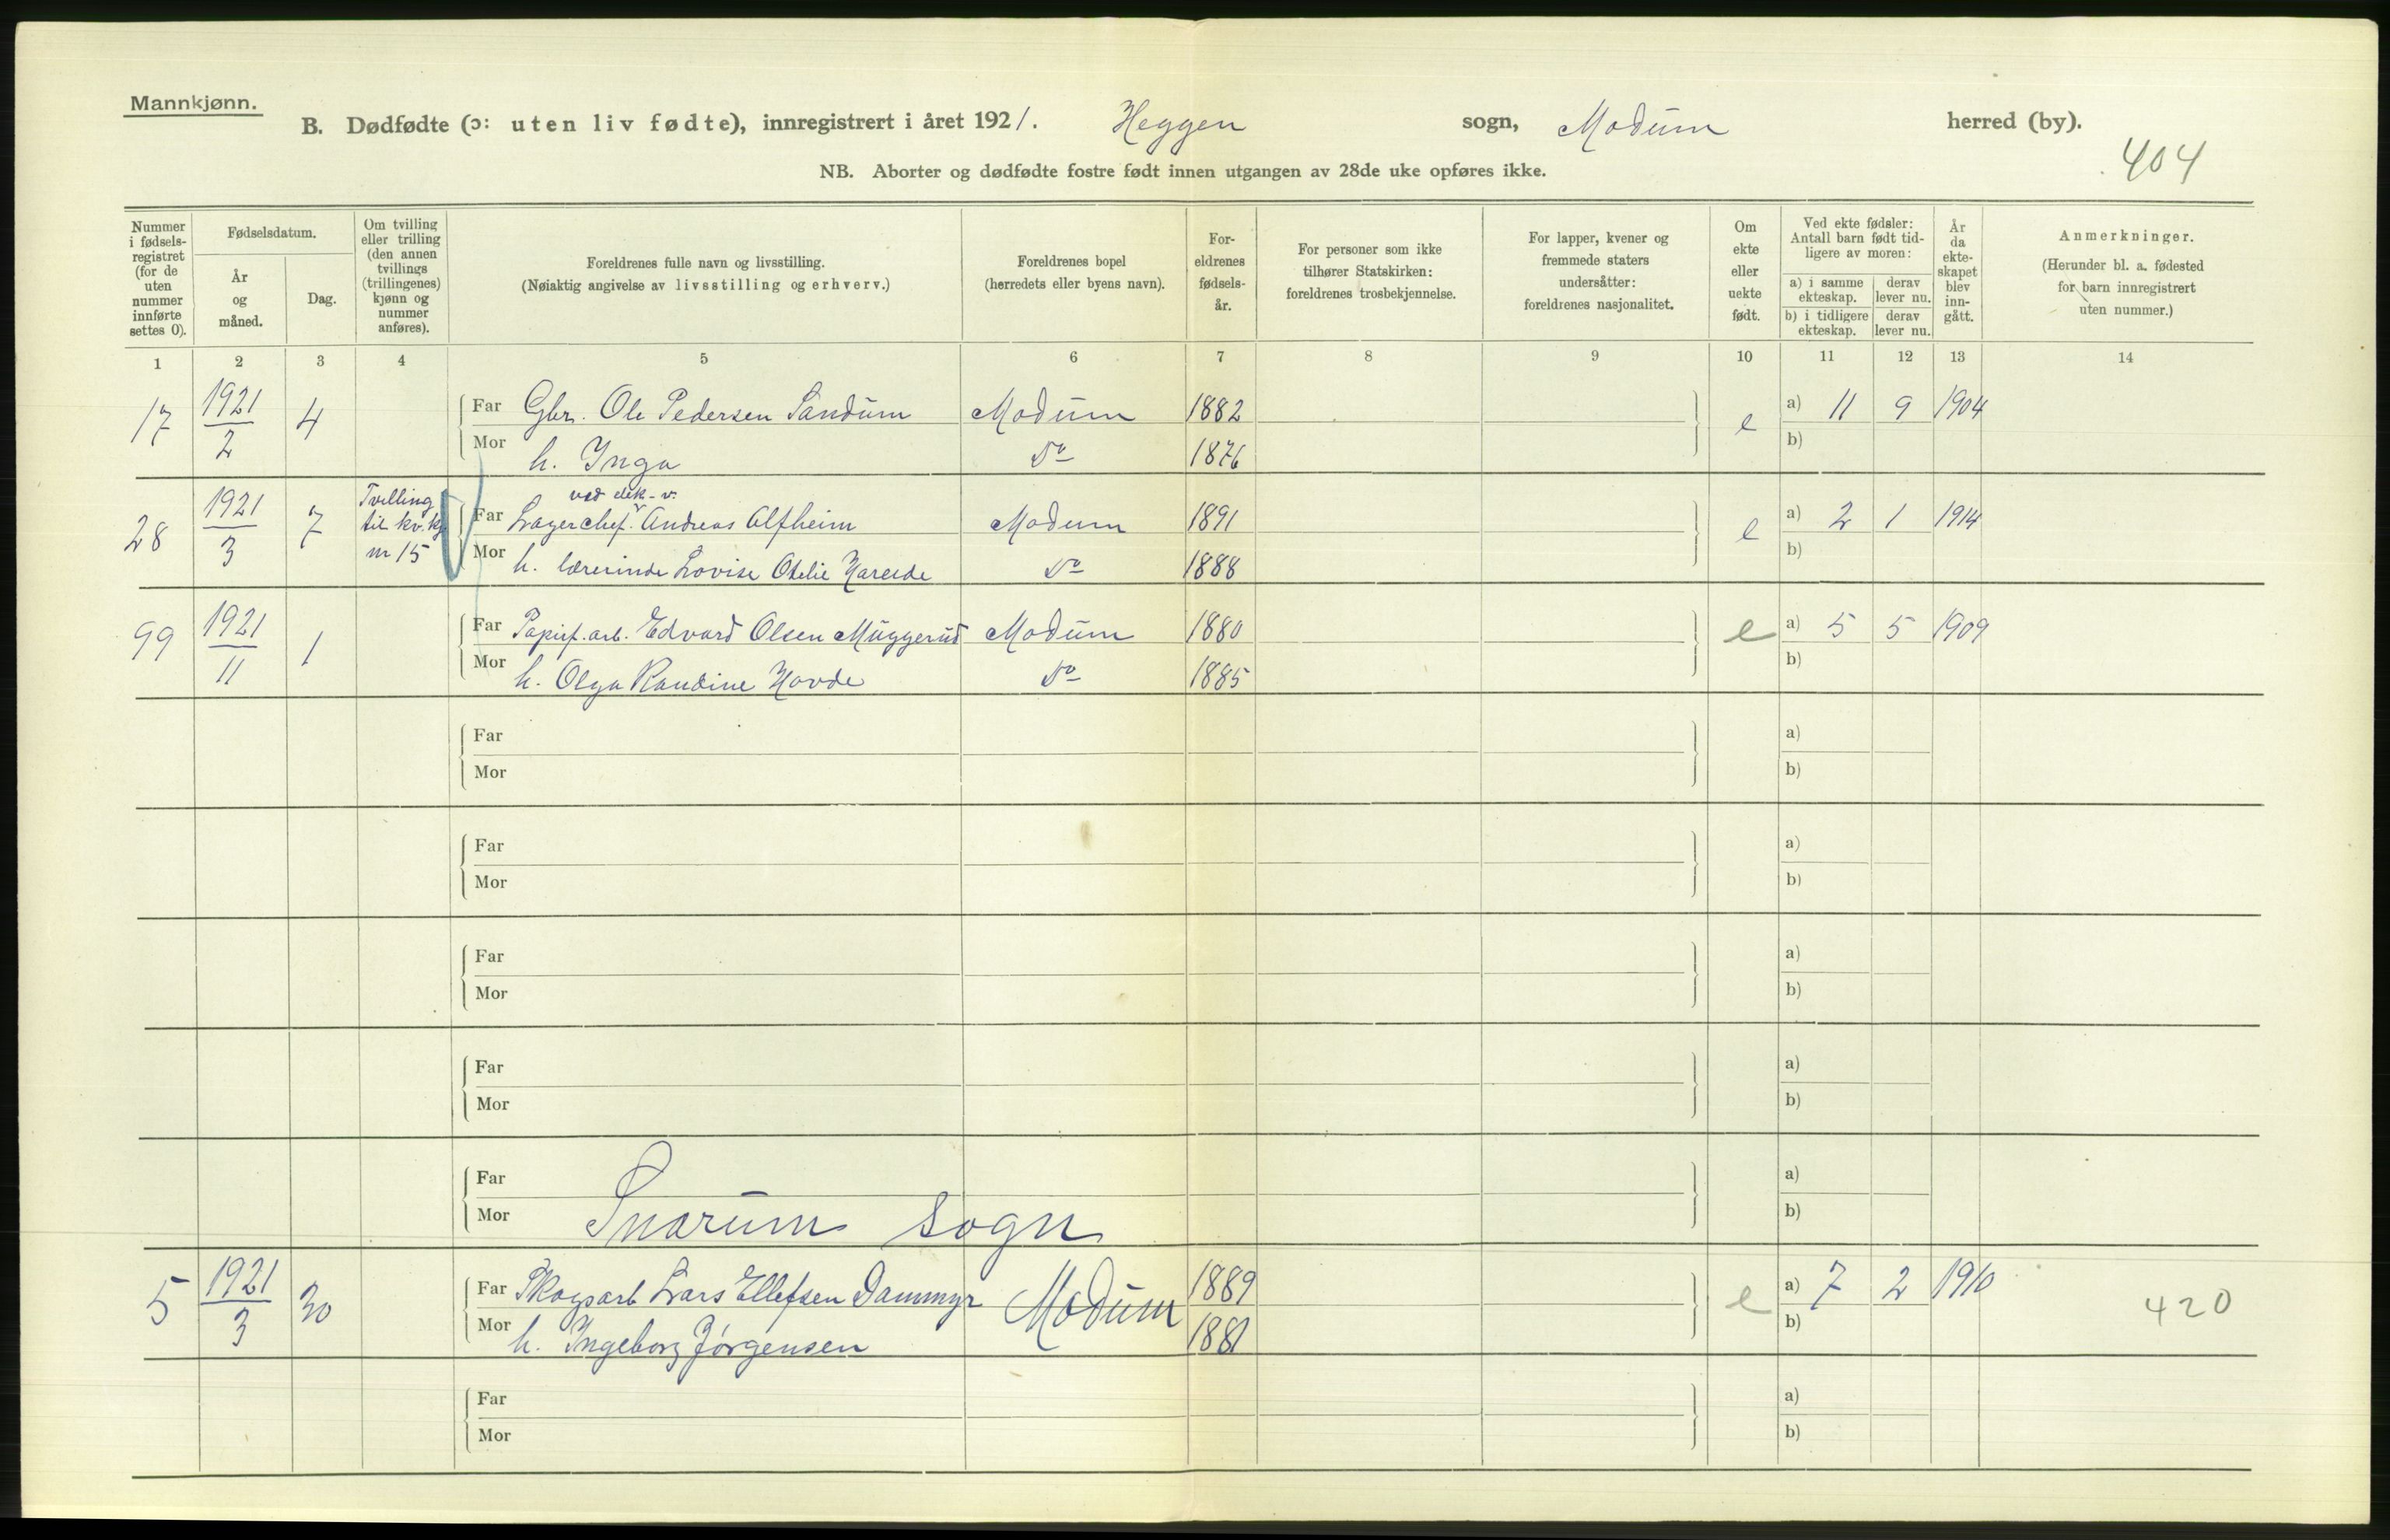 Mannkjønn.
B. Dødfødte (ɔ: uten liv fødte), innregistrert i året 1921. Heggen sogn, Modum herred (by).
NB. Aborter og dødfødte fostre født innen utgangen av 28de uke opføres ikke.
404
Nummer i fødselsregistret (for de uten nummer innførte settes 0).
Fødselsdatum.
År og måned.
Dag.
Om tvilling eller trilling (den annen tvillings (trillingenes) kjønn og nummer anføres).
Foreldrenes fulle navn og livsstilling.
(Nøiaktig angivelse av livsstilling og erhverv.)
Foreldrenes bopel
(herredets eller byens navn).
Foreldrenes fødselsår.
For personer som ikke tilhører Statskirken: foreldrenes trosbekjennelse.
For lapper, kvener og fremmede staters undersåtter: foreldrenes nasjonalitet.
Om ekte eller uekte født.
Ved ekte fødsler: Antall barn født tidligere av moren:
a) i samme ekteskap.
derav lever nu.
b) i tidligere ekteskap.
derav lever nu.
År da ekteskapet blev inngått.
Anmerkninger.
(Herunder bl. a. fødested for barn innregistrert uten nummer.)
1 2 3 4 5 6 7 8 9 10 11 12 13 14
17 1921/2 4 Far Gbr. Ole Pedersen Sandum Modum 1882 e a) 11 9 1904
Mor h. Inga do 1876 b)
28 1921/3 7 Tvilling til kv.kj. nr 15 ved elek-v.
Far Lagerchef Andreas Alfheim Modum 1891 e a) 2 1 1914
Mor h. lærerinde Lovise Otelie Hareide do 1888 b)
99 1921/11 1 Far Papirf.arb. Edvard Olsen Muggerud Modum 1880 e a) 5 5 1909
Mor h. Olga Randine Hovde do 1885 b)
Far a)
Mor b)
Far a)
Mor b)
Far a)
Mor b)
Far a)
Mor b)
Far a)
Mor b)
Snarum sogn
5 1921/3 30 Far Skogsarb Lars Ellefsen Dammyr Modum 1889 e a) 7 2 1910
Mor h. Ingeborg Jørgensen 1881 b)
420
Far a)
Mor b)